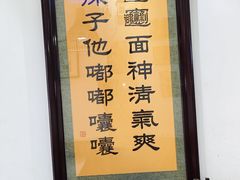 面神清氣爽
子他嘟嘟囔囔